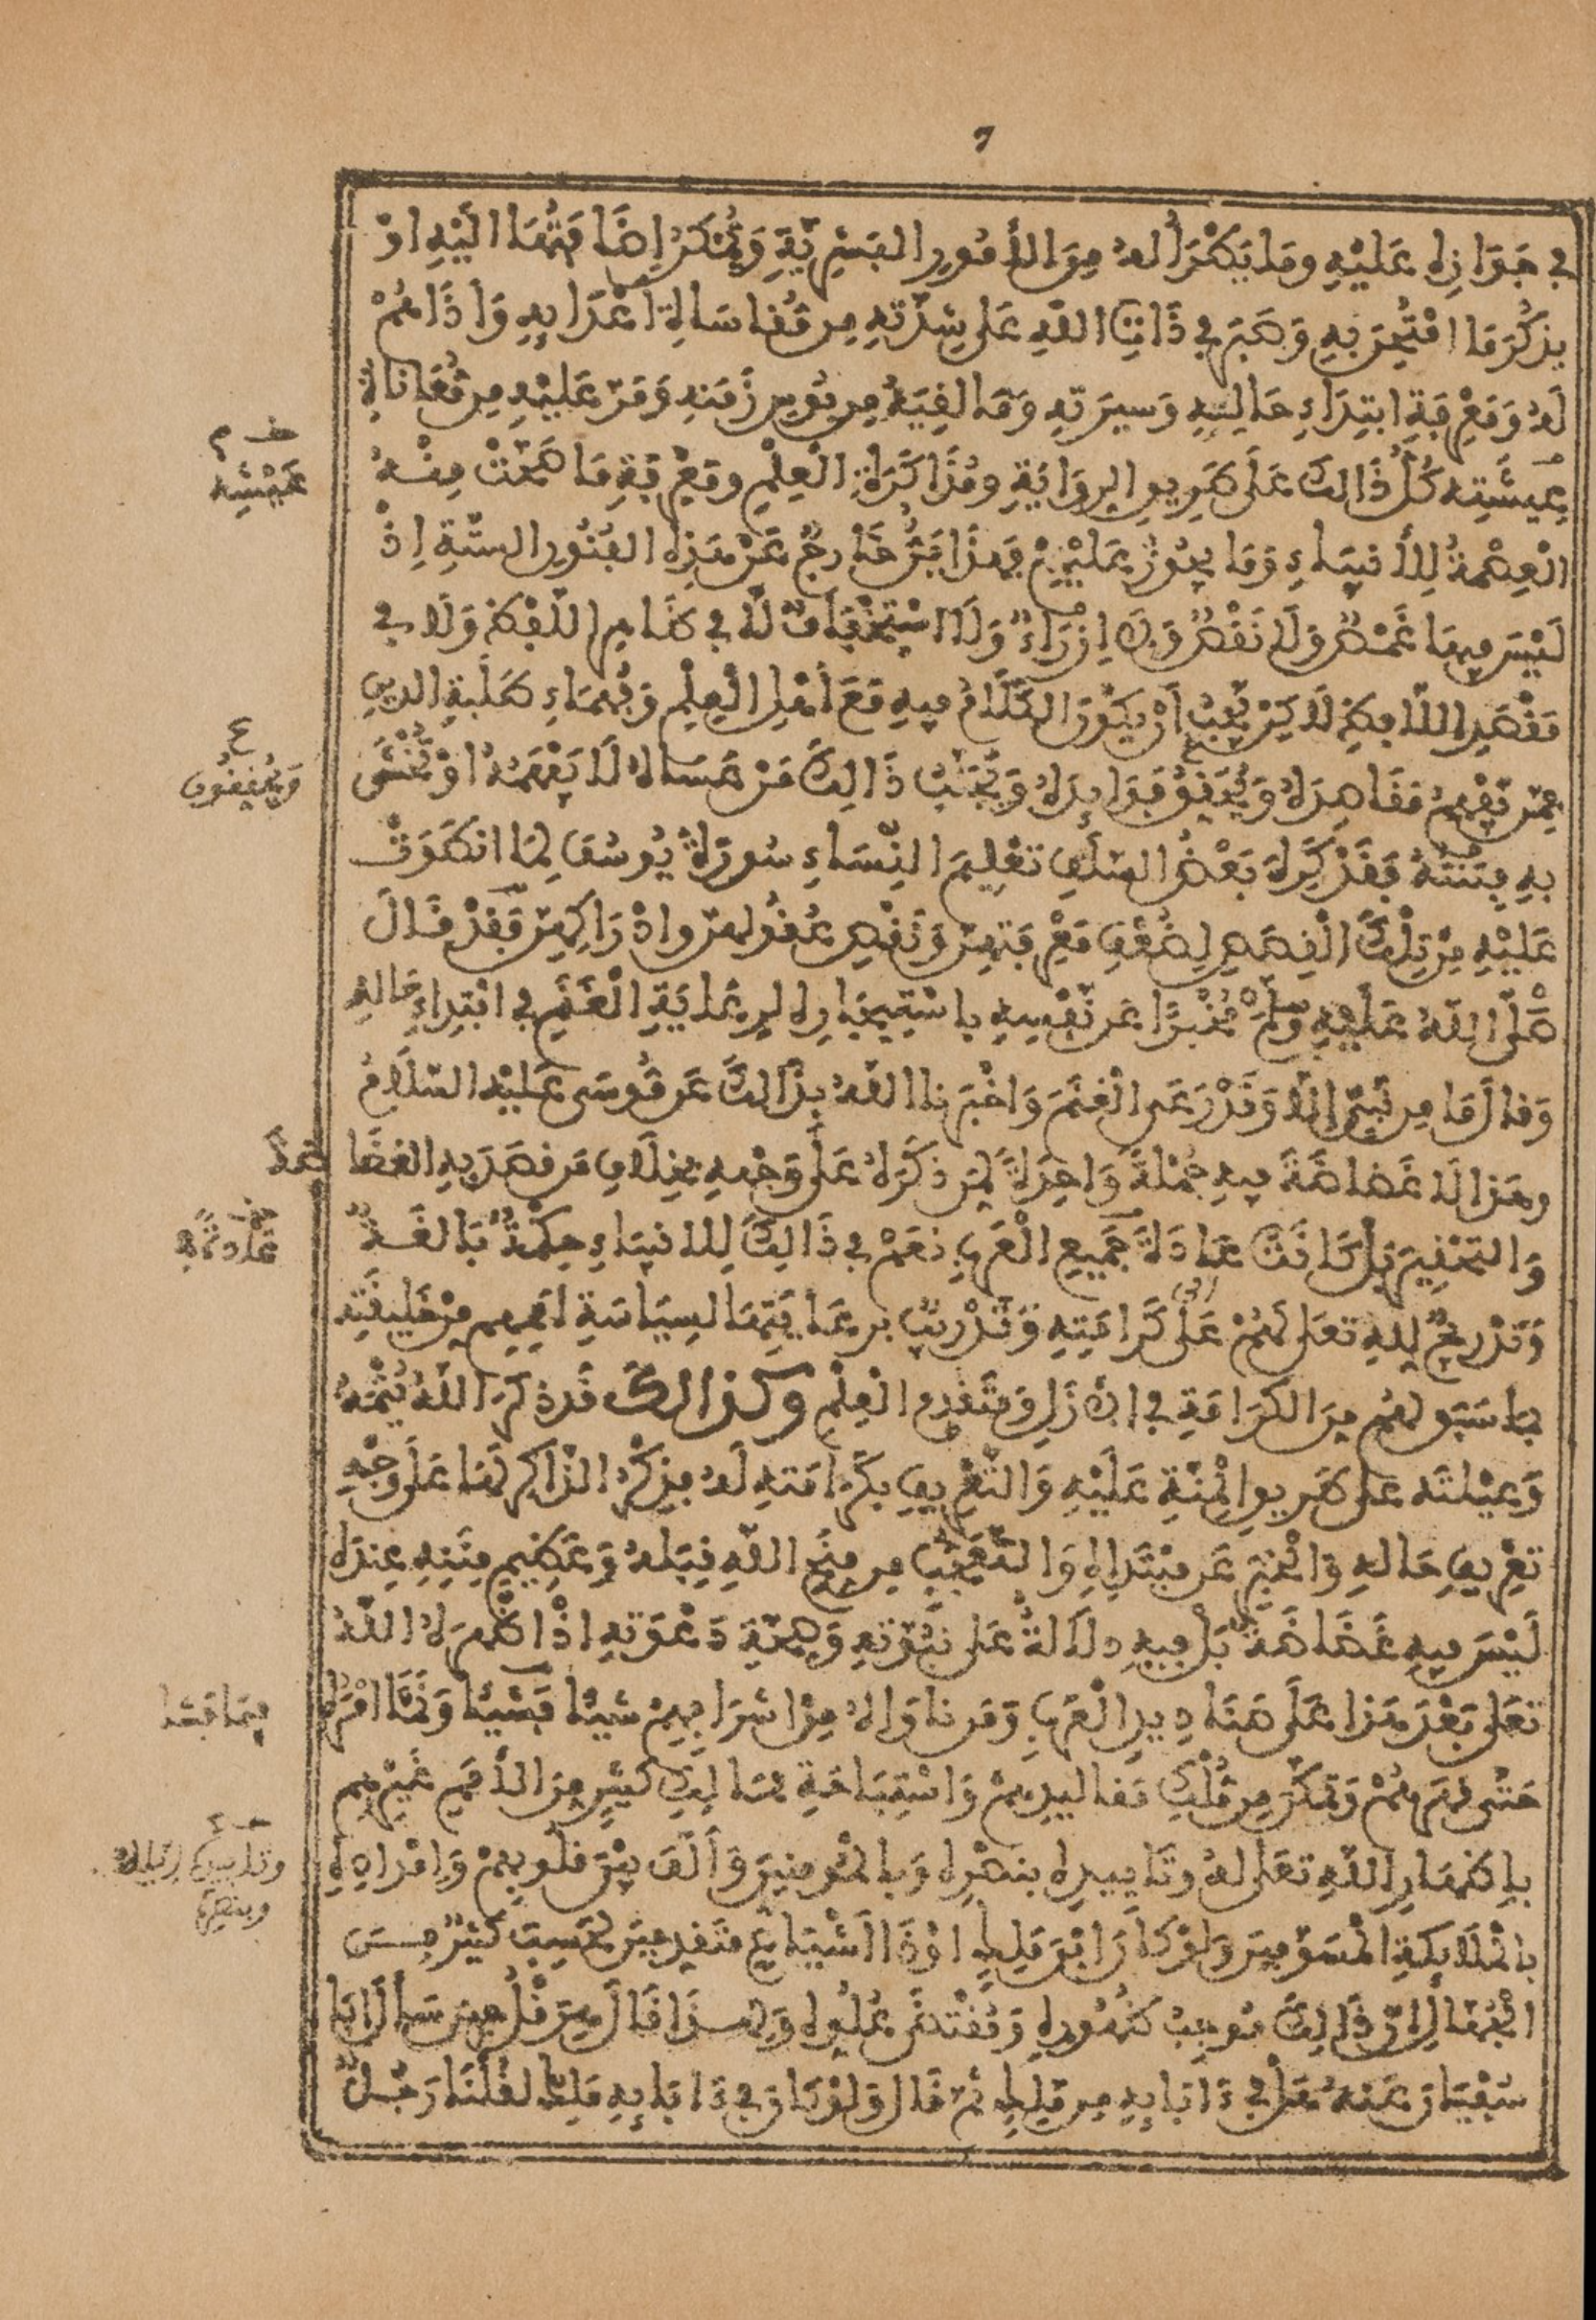 ٦
في جوازه عليه وما يطرأ له من الأمور البشرية ويمكن إضافتها إليه أو
يذكر ما امتحن به وصبر في ذات الله على شدته من مقاساة أعدائه وأذاهم
له ومعرفة ابتداء حاله وسيرته وما لقيه من بوس زمنه ومر عليه من معاناة
عيشته كل ذالك على طريق الرواية ومذاكرة العلم ومعرفة ما صحت منه
العصمة للأنبياء وما يجوز عليهم فهذا فن خارج عن هذه الفنون الستة إذ
ليس فيها غمص ولا نقص ولا إزراء ولا استخفاف لا في ظاهر اللفظ ولا في
مقصد اللافظ لاكن يجب أن يكون الكلام فيه مع أهل العلم وفهماء طلبة الدين
ممن يفهم مقاصده ويحقق فوائده ويجنب ذالك من عساه لا يفقهه أو يخشى
به فتنته فقد كره بعض السلف تعليم النساء سورة يوسف لما انطوت
عليه من تلك القصص لضعف معرفتهن ونقص عقولهن وإدراكهن فقد قال
صلى الله عليه وسلم مخبرا عن نفسه باستيجاره لرعاية الغنم في ابتداء حاله
وقال ما من نبي إلا وقد رعى الغنم وأخبرنا الله بذالك عن موسى عليه السلام
وهذا لا غضاضة فيه جملة واحدة لمن ذكره على وجهه بخلاف من قصد به الغضاضة
والتحقير بل كانت عادة جميع العرب نعم في ذالك للانبياء حكمة بالغة
وتدريج لله تعلى لهم على كرامته وتدريب برعايتها لسياسة أممهم من خليقته
بما سبق لهم من الكرامة في الأزل ومتقدم العلم وكذالك قد ذكر الله يتمه
وعيلته على طريق المنة عليه والتعريف بكرامته له فذكر الذاكر لها على وجه
تعريف حاله والخبر عن مبتدإه والتعجب من منح الله قبله وعظيم منته عنده
ليس فيه غضاضة بل فيه دلالة على نبوته وصحة دعوته إذ أظهره الله
تعلى بعد هذا على صناديد العرب ومن ناواه من أشرافهم شيئا فشيئا ونمى أمره
حتى قهرهم وتمكن من ملك مقاليدهم واستباحة ممالك كثير من الأمم غيرهم
بإظهار الله تعلى له وتأييده بنصره وبالمومنين وألف بين قلوبهم وإمداده
بالملائكة المسومين ولو كان ابن ملك أو ذا أشياع متقدمين لحسب كثير من
الجهال أن ذالك موجب ظهوره ومقتضى علوه ولهذا قال هرقل حين سأل أبا
سفيان عنه هل في ءابائه من ملك ثم قال ولو كان في ءابائه ملك لقلنا رجل
عيشه
ويحققون
فيما فشا